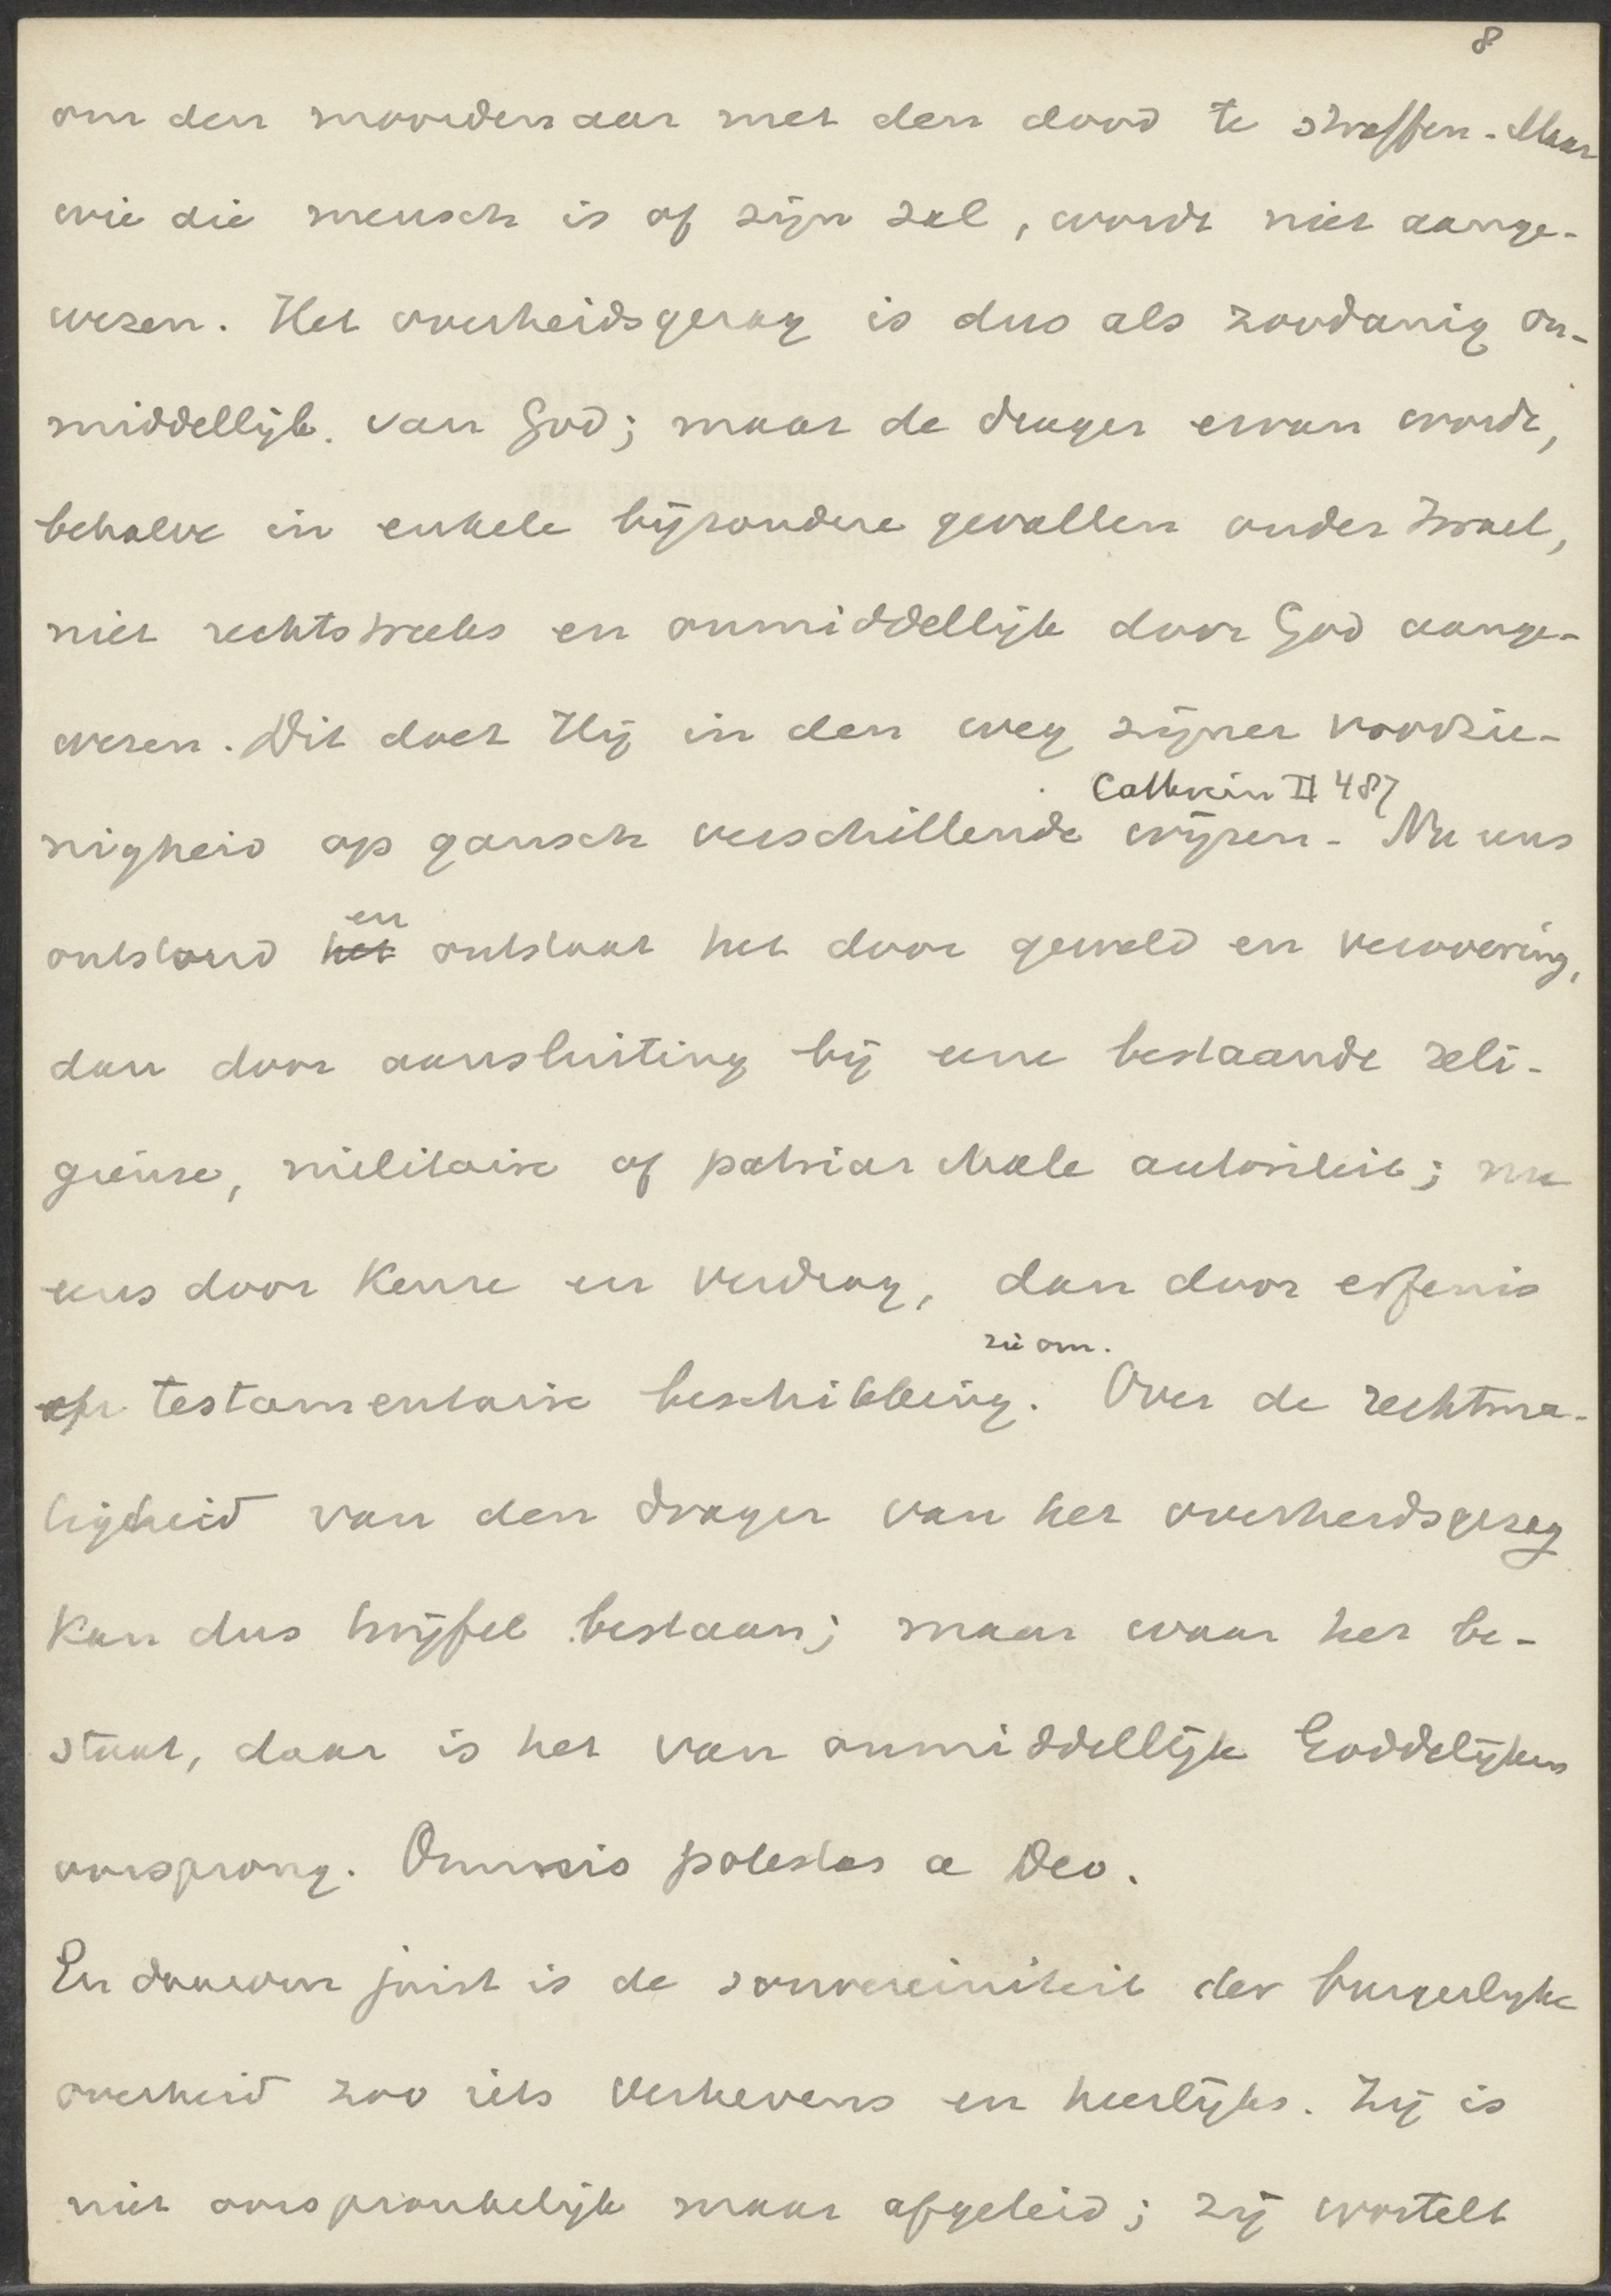 8
om den moordenaar met den dood te straffen. Maar
wie die mensch is of zijn zal, wordt niet aange-
wezen. Het overheidsgezag is dus als zoodanig on-
middellijk van God; maar de drager ervan wordt,
behalve in enkele bijzondere gevallen onder Israel,
niet rechtstreeks en onmiddellijk door God aange-
wezen. Dit doet Hij in den weg zijner voorzie-
Cathrein II 487
nigheid op gansch verschillende wijzen. Nu eens
en
ontstond het ontstaat het door geweld en verovering,
dan door aansluiting bij eene bestaande reli-
gieuse, militaire of patriarchale autoriteit; nu
eens door keuze en verdrag, dan door erfenis
zie om.
of testamentaire beschikking. Over de rechtma-
tigheid van den drager van het overheidsgezag
kan dus twijfel bestaan; maar waar het be-
staat, daar is het van onmiddellijk Goddelijken
oorsprong. Omnis potestas a Deo.
En daarom juist is de souvereiniteit der burgerlijke
overheid zoo iets verhevens en heerlijks. Zij is
niet oorspronkelijk maar afgeleid; zij wortelt